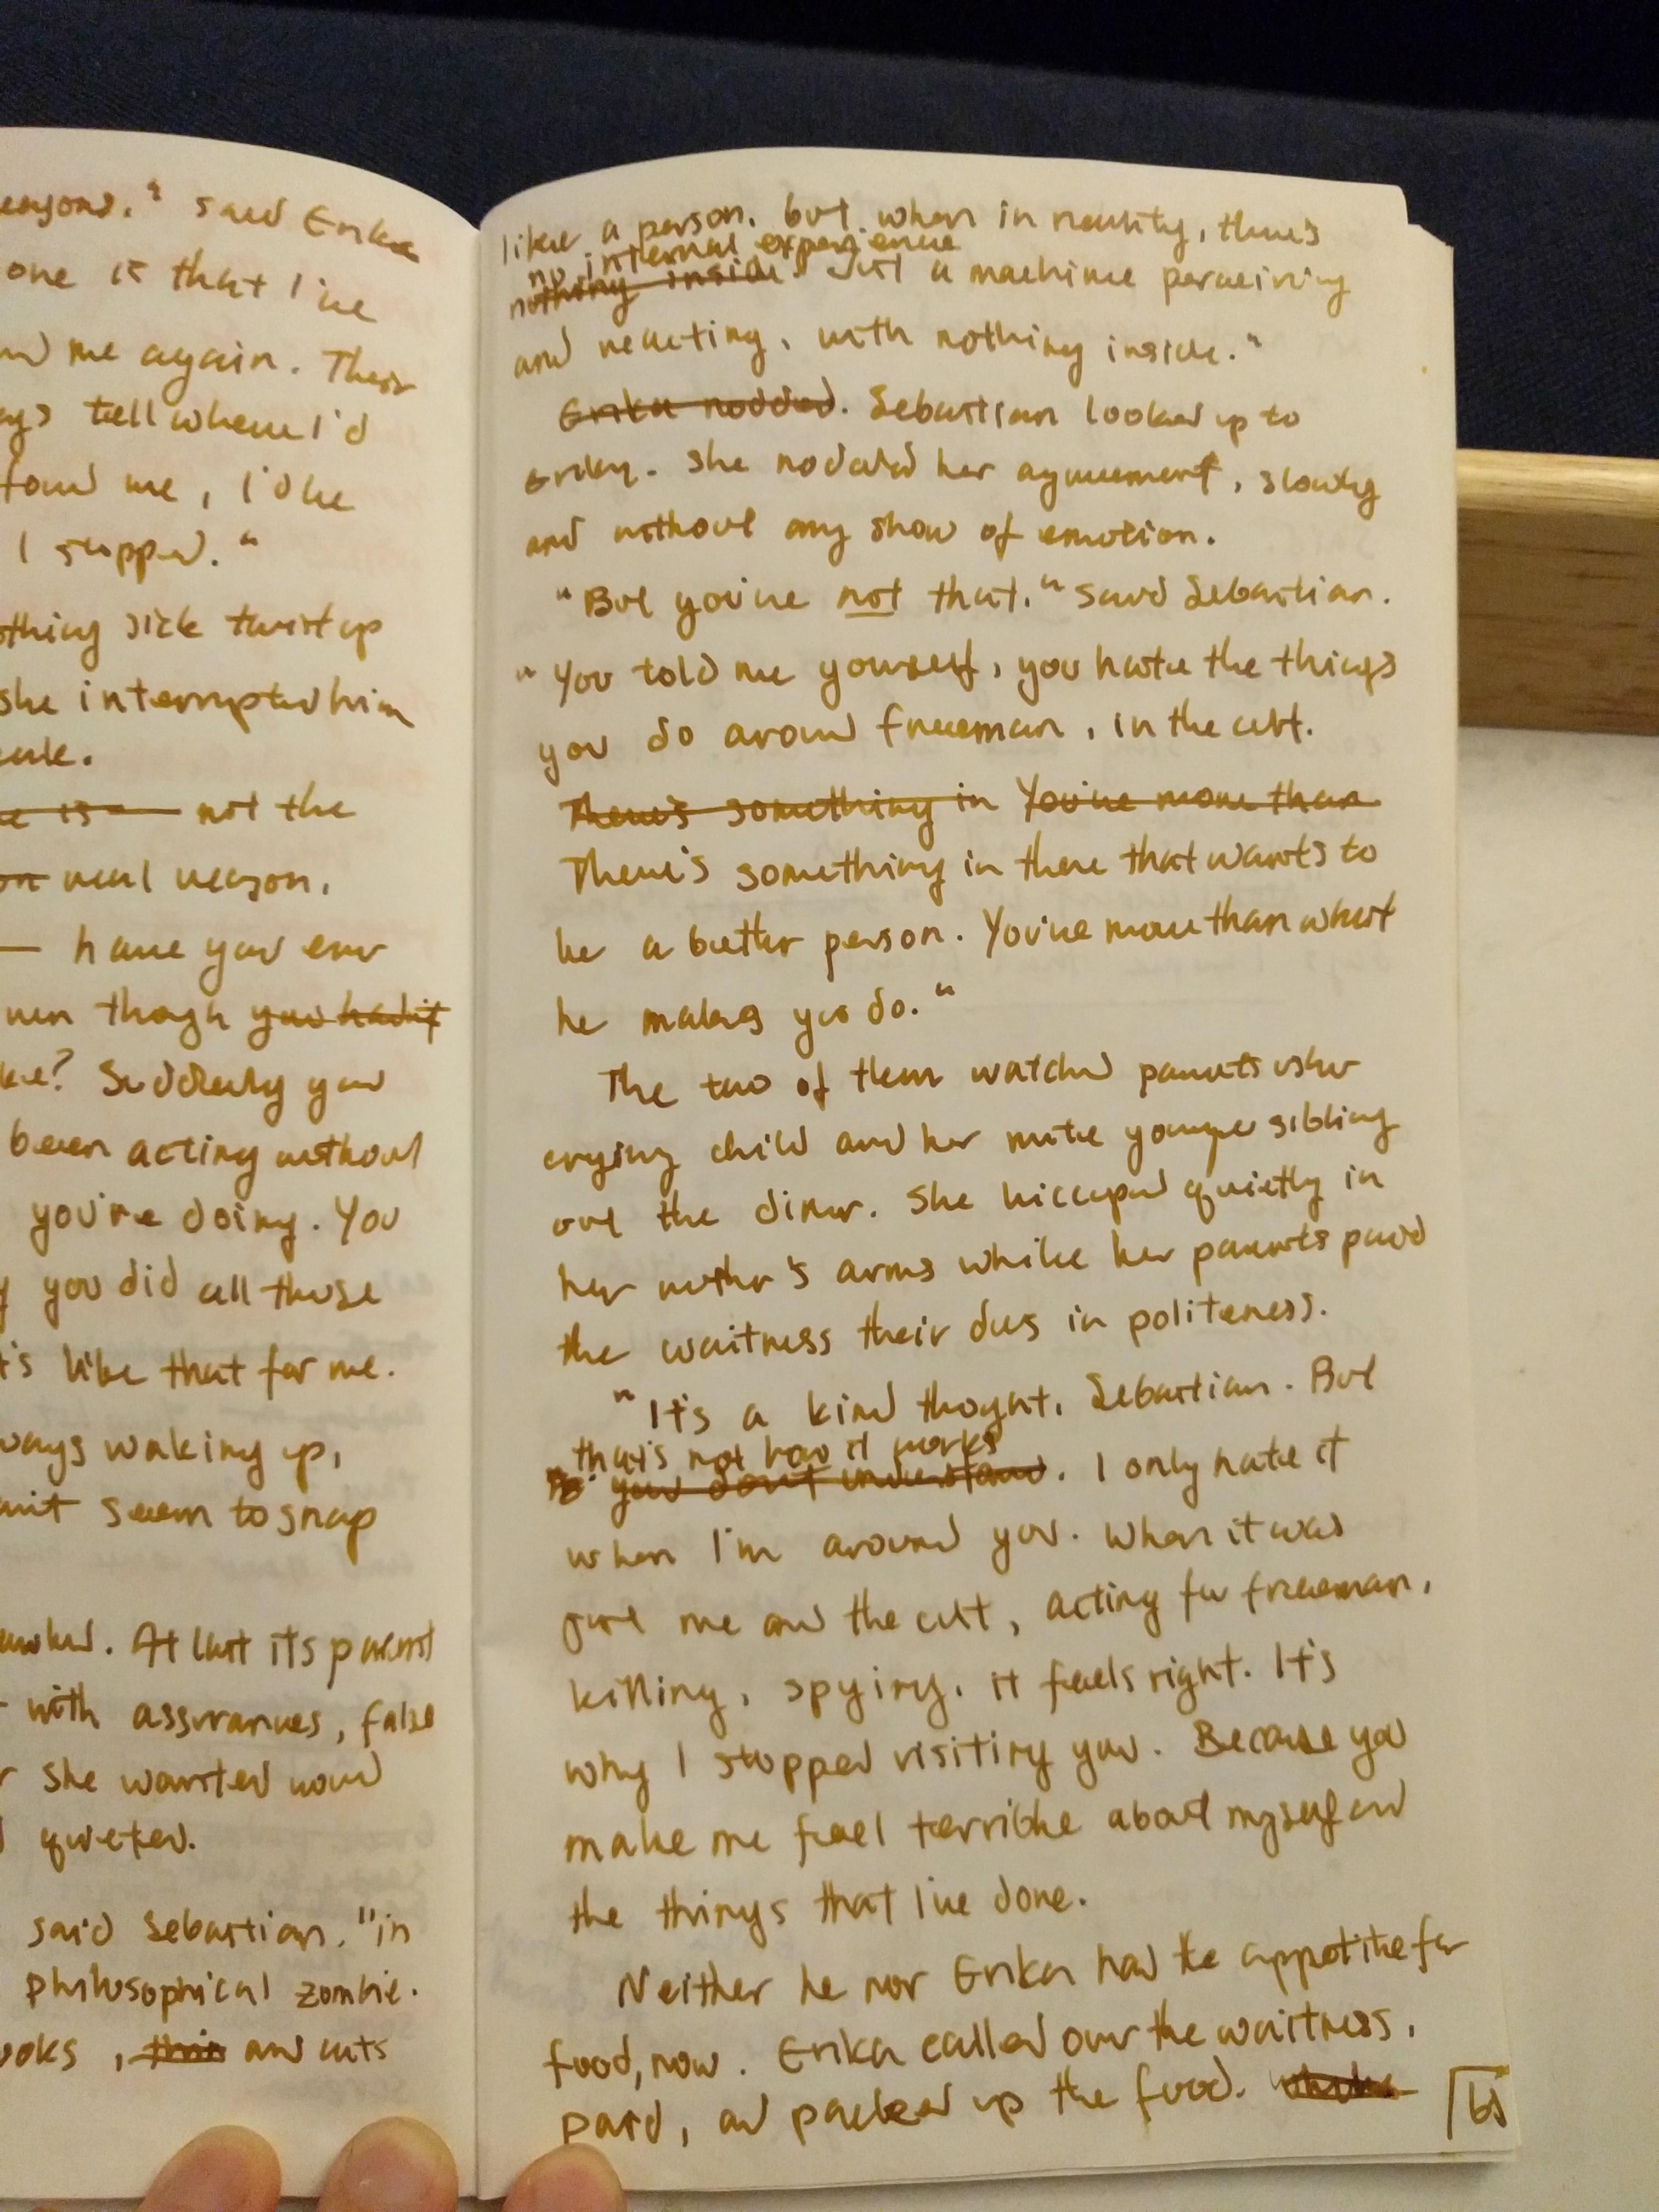 easons," said Erika
one is that I've
me again. Their
tell where I'd
found me, I'd be
I stopped."
thing sick twist up
she interrupted him
not the
real reason.
— have you ever
even though you hadn't
Suddenly you
been acting without
you're doing. You
you did all those
it's like that for me.
ways waking up,
can't seem to snap
At last its parent
with assurances, false
she wanted now
quieter.
said Sebastian. "in
philosophical zombie.
ooks, this and acts
like a person. but when in reality, there's
no internal experience
nothing inside. Just a machine perceiving
and reacting, with nothing inside."
Erika nodded. Sebastian looked up to
Erika. She nodded her agreement, slowly
and without any show of emotion.
"But you're not that," said Sebastian.
"You told me yourself, you hate the things
you do around Freeman, in the cult.
There's something in You're more than
There's something in there that wants to
be a better person. You're more than what
he makes you do."
The two of them watched parents usher
crying child and her mute younger sibling
out the diner. She hiccuped quietly in
her mother's arms while her parents paid
the waitress their dues in politeness.
"It's a kind thought, Sebastian. But
that's not how it works
you don't understand. I only hate it
when I'm around you. When it was
just me and the cult, acting for Freeman,
killing, spying, it feels right. It's
why I stopped visiting you. Because you
make me feel terrible about myself and
the things that I've done.
Neither he nor Erika had the appetite for
food, now. Erika called over the waitress,
paid, and packed up the food.